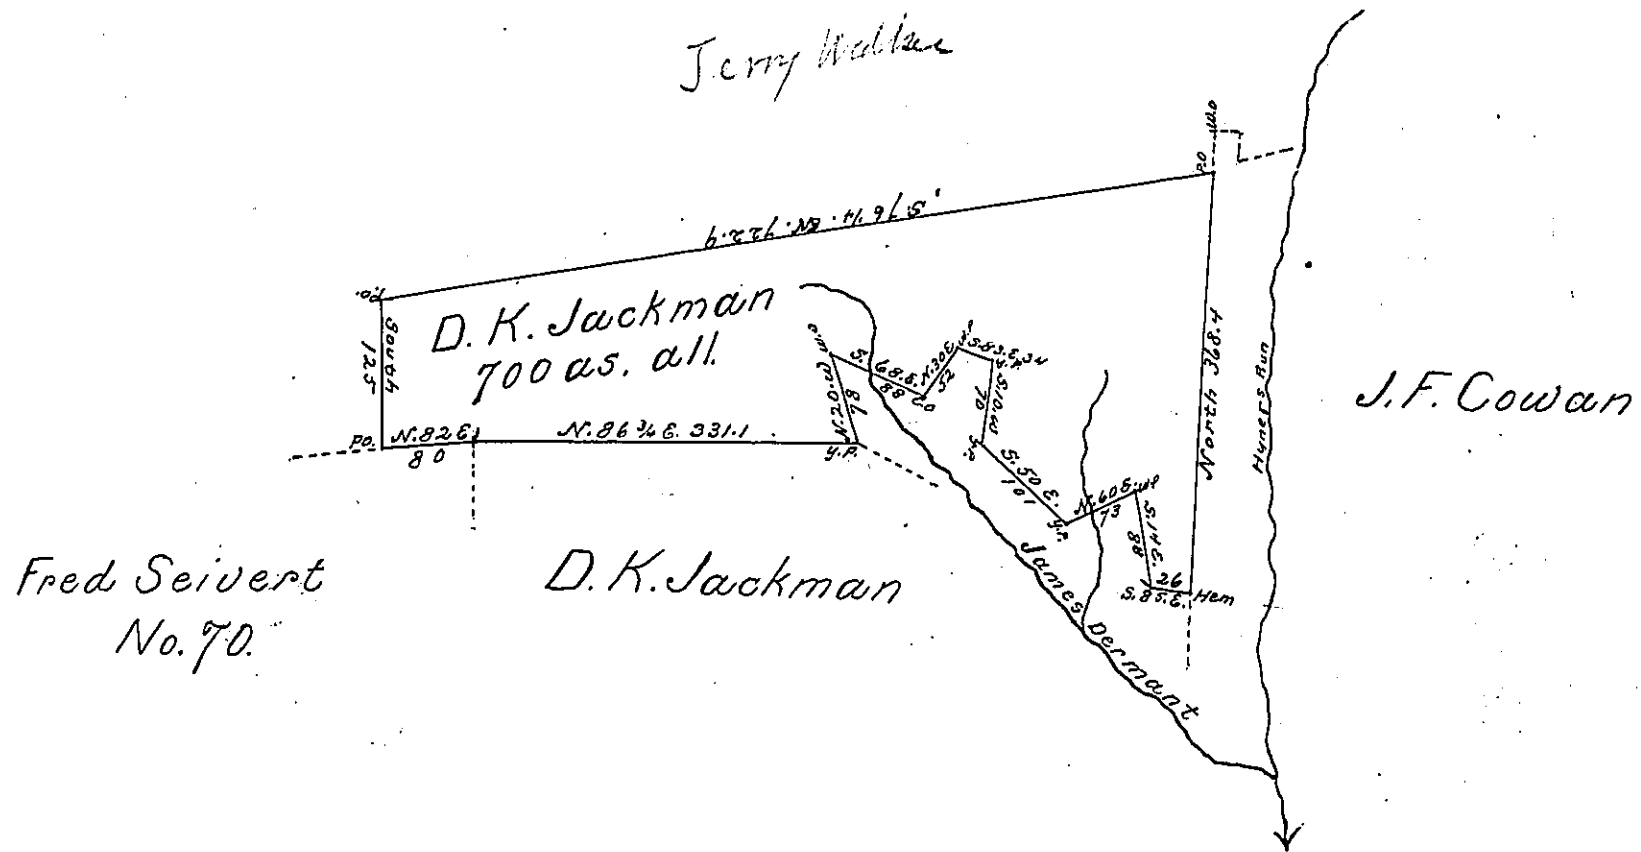 Jerry
W.O
P.O
S. 76 1/4. W. 722.9
P.O.
South
125
D. K. Jackman
700 as. all.
W.O
S. 68. E.
88
C.O
N. 30 E.
52
S. 83. E. 34
Y.P.
S. 10. W
70
Y.P.
S. 50 E.
101
Y.P.
N. 60 E.
73
S. 14 E.
88
26
S. 85. E.
Hem
North 368.4
Hyners Run
J. F. Cowan
P.O.
N. 82 E.
80
N. 86 3/4 E. 331.1
Y.P.
N. 20. W
78
Fred Seivert
No. 70.
D. K. Jackman
James Dermant